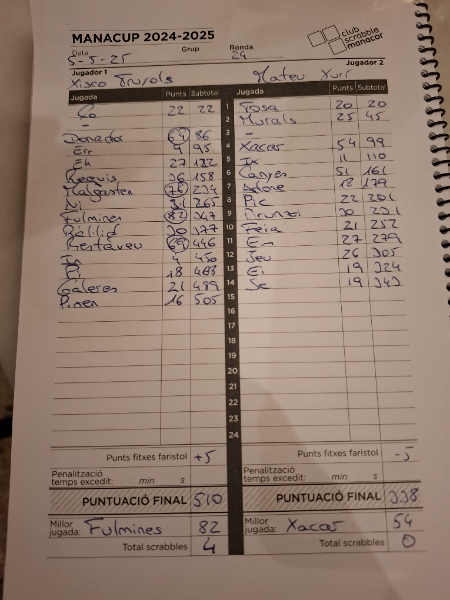 MANACUP 2024-2025
club scrabble manacor
Data Grup Ronda
5-5-25 24
Jugador 1 Jugador 2
Xisco Mateu
Jugada Punts Subtotal Jugada Punts Subtotal
Ço 22 22 1 Tosa 20 20
- 2 Murals 25 45
Donador 64 86 3 -
Err 9 95 4 Xacar 54 99
Eh 27 122 5 Ix 11 110
Requis 36 158 6 Canyes 51 161
76 234 7 18 179
Ni 31 265 8 Pic 22 201
Fulmines 82 347 9 30 231
30 377 10 Feia 21 252
Restaveu 69 446 11 Em 27 279
4 450 12 Jeu 26 305
Pi 18 468 13 Ei 19 324
Galeres 21 489 14 Se 19 343
Pinen 16 505 15
16
17
18
19
20
21
22
23
24
Punts fitxes faristol +5 Punts fitxes faristol -5
Penalització temps excedit: min s Penalització temps excedit: min s
PUNTUACIÓ FINAL 510 PUNTUACIÓ FINAL 338
Millor jugada: Fulmines 82 Millor jugada: Xacar 54
Total scrabbles 4 Total scrabbles 0